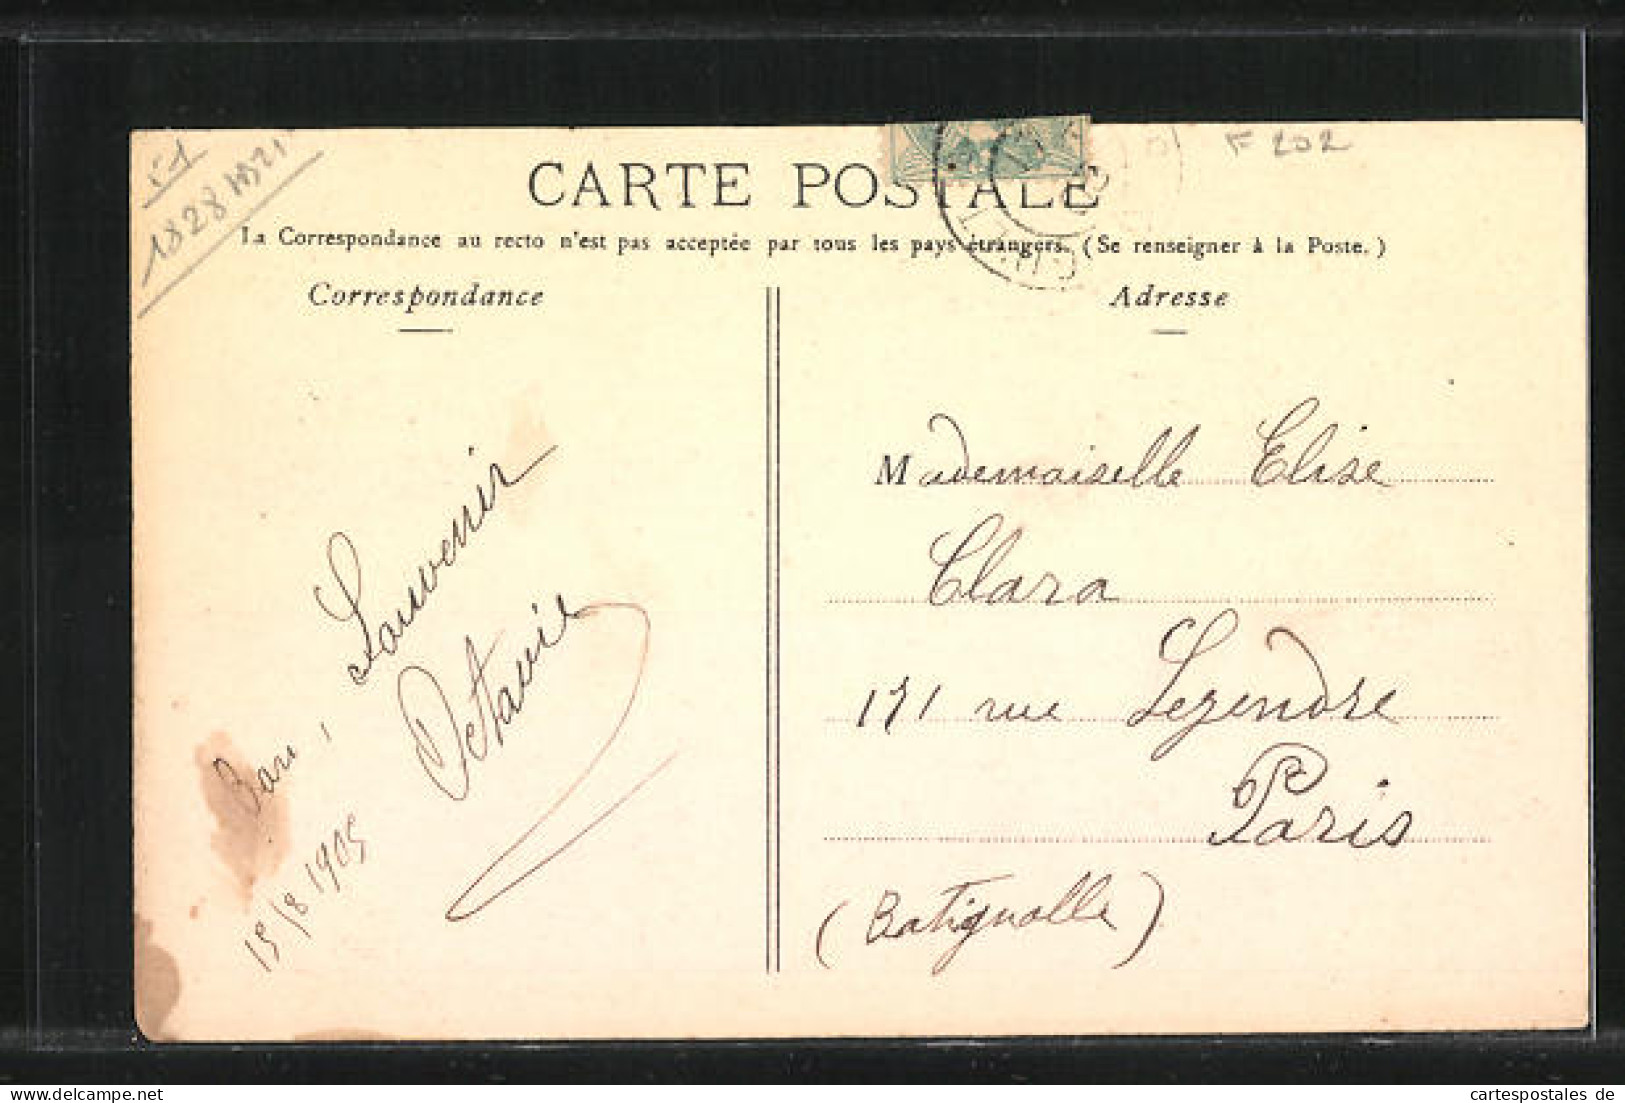 i1
1828 1321
F 202
CARTE POSTALE
La Correspondance au recto n'est pas acceptée par tous les pays étrangers. (Se renseigner à la Poste.)
Correspondance
Adresse
Souvenir
Octavie
15/8 1905
Mademaiselle Elise
Clara
171 rue Legendre
Paris
(Batignolle)
cartespostales de